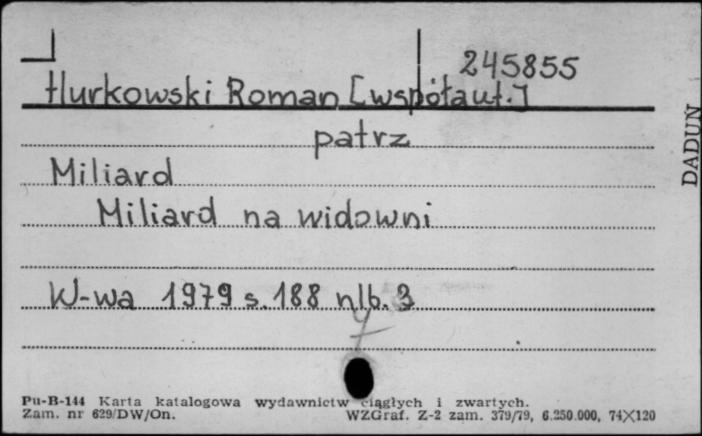 245855
Hurkowski Roman [współaut.]
patrz
Miliard
Miliard na widowni
W-wa 1979 s. 188 nlb. 3
Pu-B-144 Karta katalogowa wydawnictw ciągłych i zwartych.
Zam. nr 629/DW/On. WZGraf. Z-2 zam. 379/79, 6.250.000, 74X120
DADUŃ